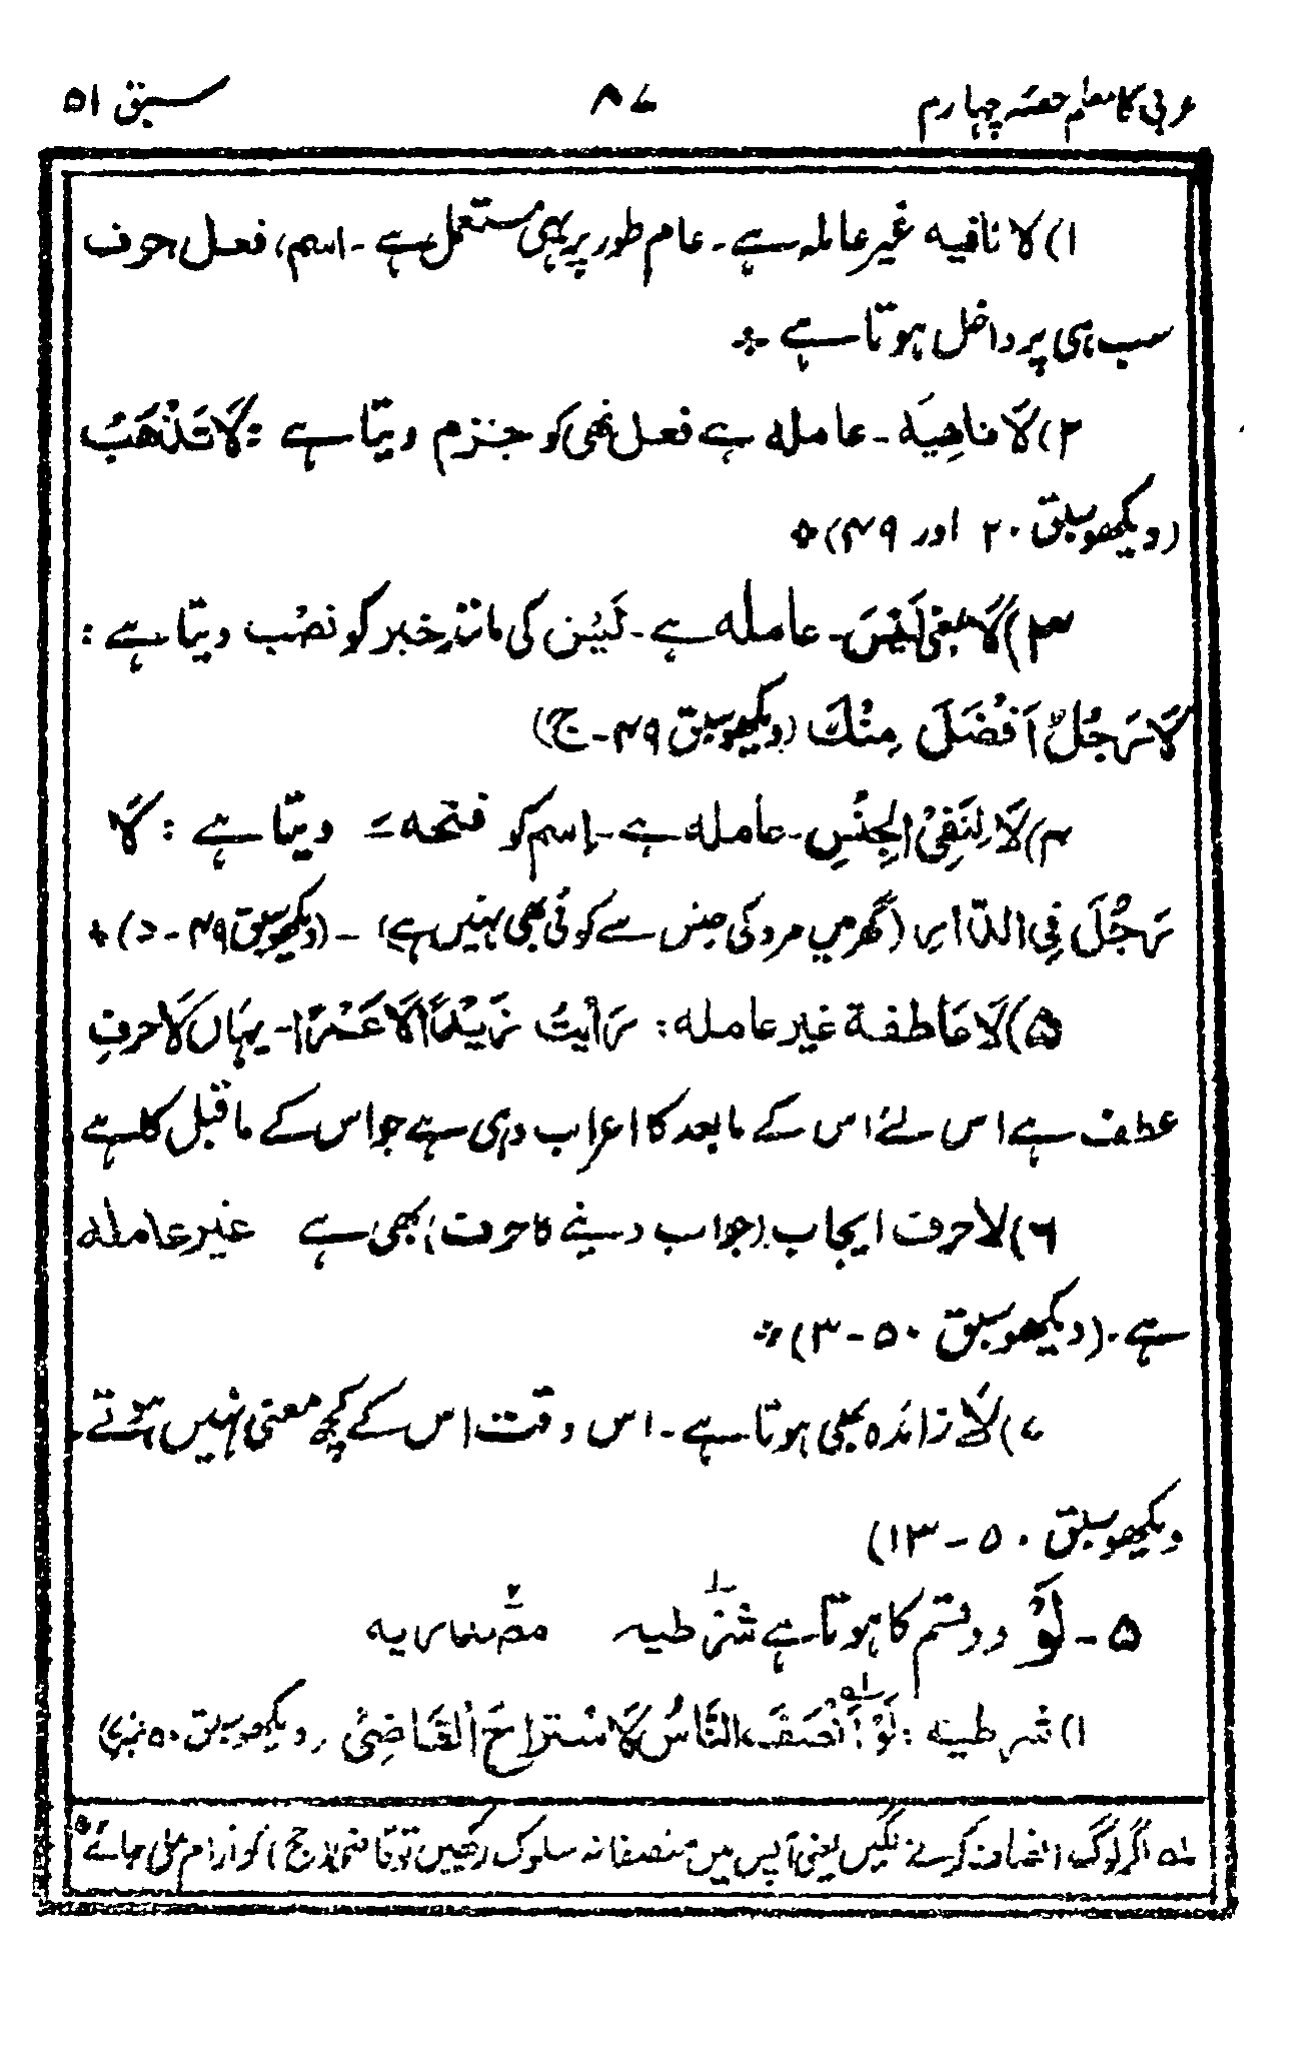 عربی کا معلم حصّہ چہارم ۸۷ سبق ۵۱
۱) لا نافیہ غیر عاملہ ہے۔ عام طور پر یہی مستعمل ہے۔ اسم، فعل، حرف
سب ہی پر داخل ہوتا ہے
۲) لَا ناهِیَہ۔ عاملہ ہے فعل نھی کو جزم دیتا ہے : لَا تَذْهَبْ
(دیکھو سبق ۲۰ اور ۴۹)
۳) لَا بمعنی لَیْسَ۔ عاملہ ہے۔ لَیْسَ کی مانند خبر کو نصْب دیتا ہے :
لَا رَجُلٌ اَفْضَلَ مِنْكَ (دیکھو سبق ۴۹۔ ج)
۴) لَا لِنَفِیْ الجِنْسِ۔ عاملہ ہے۔ اِسم کو فتحہ ـَ دیتا ہے : لَا
رَجُلَ فِی الدّارِ (گھر میں مرد کی جنس سے کوئی بھی نہیں ہے) ۔ (دیکھو سبق ۴۹۔ د)
۵) لَا عَاطفة غیر عاملہ : رَأَیْتُ زَیْدًا لَا عَمْرًا۔ یہَاں لَا حرفِ
عطف ہے اس لئے اس کے مابعد کا اعراب وہی ہے جو اس کے ماقبل کا ہے
۶) لا حرف ایجاب (جواب دینے کا حرف) بھی ہے غیر عاملہ
ہے۔ (دیکھو سبق ۵۰۔۳)
۷) لَا زائدہ بھی ہوتا ہے۔ اس وقت اس کے کچھ معنی نہیں ہوتے۔
دیکھو سبق ۵۰۔۱۳)
۵۔ لَوْ دو قسم کا ہوتا ہے شرطیہ مصدریہ
۱) شرطیہ : لَوْ اَنْصَفَ النَّاسُ لَاسْتَرَاحَ الْقَاضِیْ (دیکھو سبق ۵۰ نمبر ۷)
لہ اگر لوگ انصاف کرنے لگیں یعنی آپس میں منصفانہ سلوک رکھیں تو قاضی (جج) کو آرام مل جائے